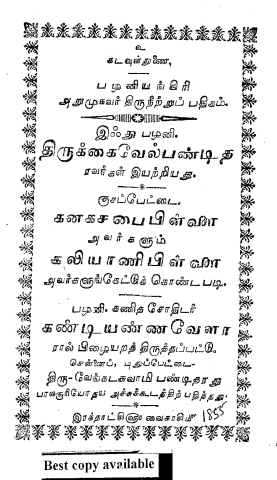 உ
கடவுள்துணை.
பழனியங்கிரி
அறுமுகவர் திருநீற்றுப் பதிகம்.
இஃது பழனி.
திருக்கைவேல்பண்டித
ரவர்கள் இயற்றியது.
குசப்பேட்டை.
கனகசபைபிள்ளை
அவர்களும்
கலியாணிபிள்ளை
அவர்களுங்கேட்டுக் கொண்டபடி.
பழனி. கணித சோதிடர்
கண்டியண்ணவேளா
ரால் பிழையறத் திருத்தப்பட்டு.
சென்னைப், புதுப்பேட்டை-
திரு-வேங்கடசுவாமி பண்டிதரது
அச்சுக்கூடத்திற் பதித்தது.
இரக்தாட்சிளு வைகாசிமீ 1855
Best copy available